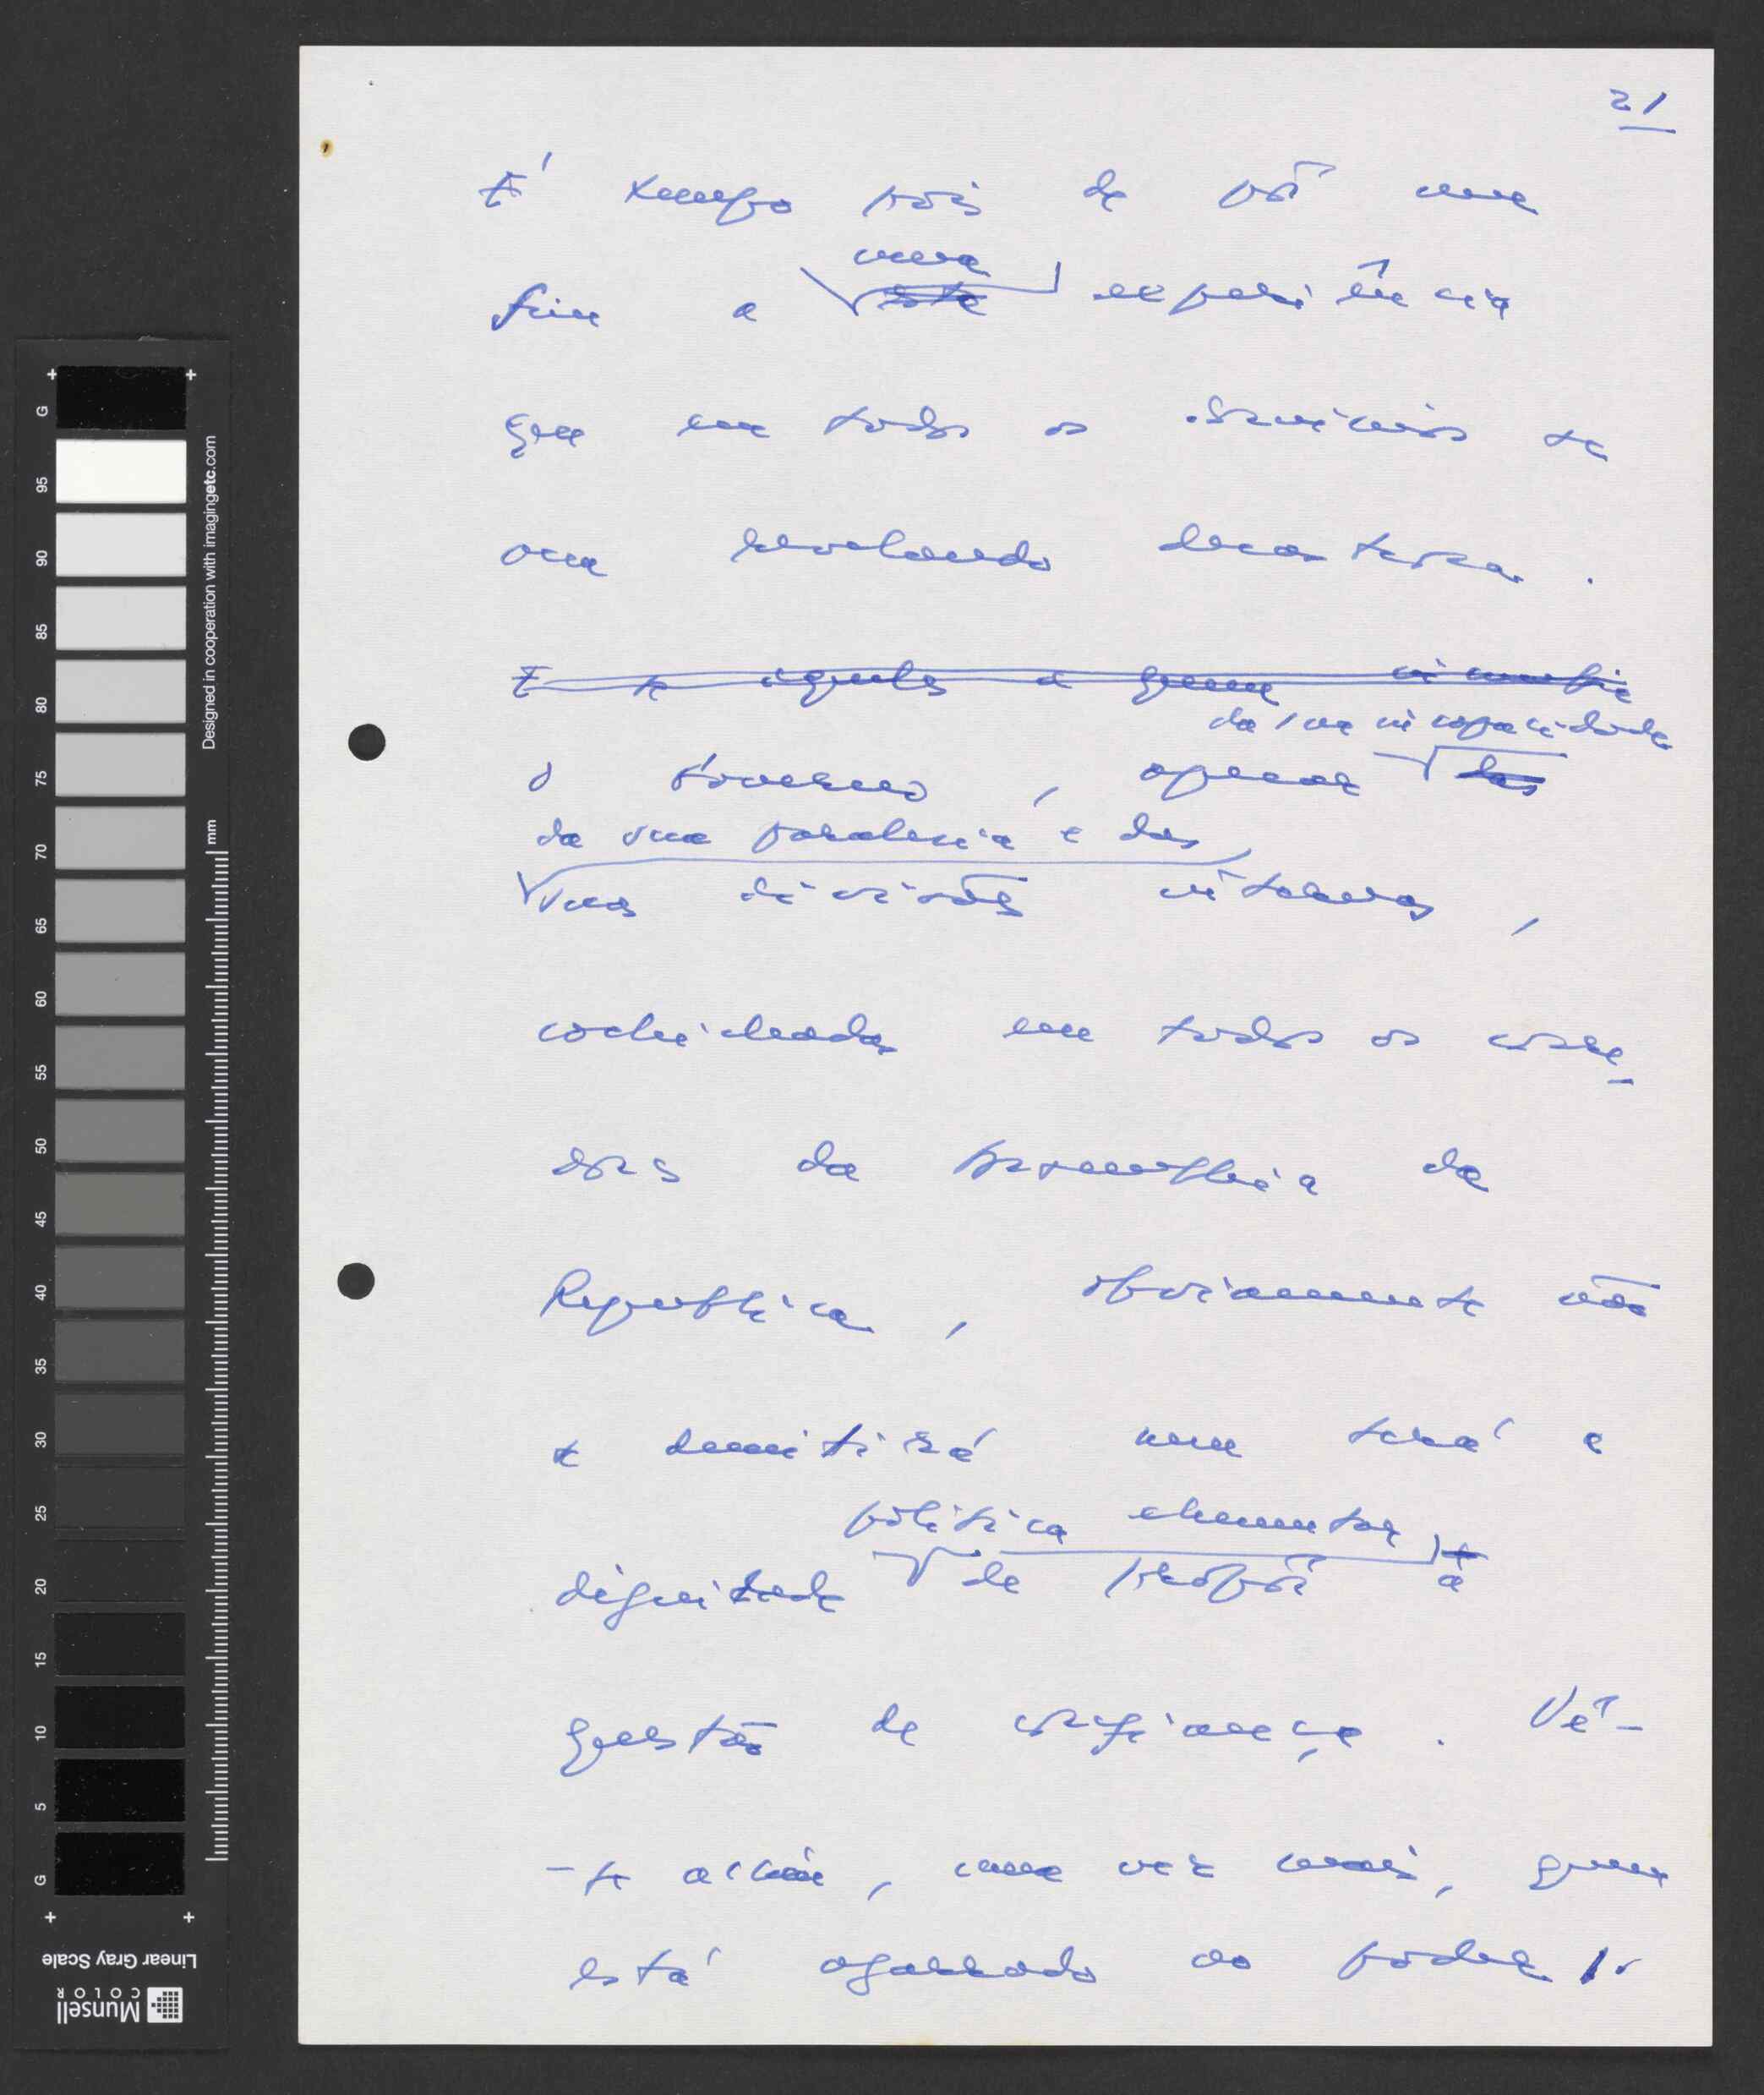 21
É tempo pois de pôr um
uma
fim a este experiência
que em todos os domínios se
vem revelando desastrosa.
E se aquele a quem incumbe
da sua incapacidade
O Governo, apesar das
da sua paralesia e das
suas divisões internas,
cochichadas em todos os corre-
dores da Assembleia da
República, obviamente não
se demitirá nem terá a
política elementar
dignidade de propôr a
questão de confiança. Vê-
-se assim, uma vez mais, quem
está agarrado ao poder!.
G 95 90 85 80 75 70 65 60 55 50 45 40 35 30 25 20 15 10 5 G
Designed in cooperation with imagingetc.com
mm
Linear Gray Scale
Munsell
COLOR